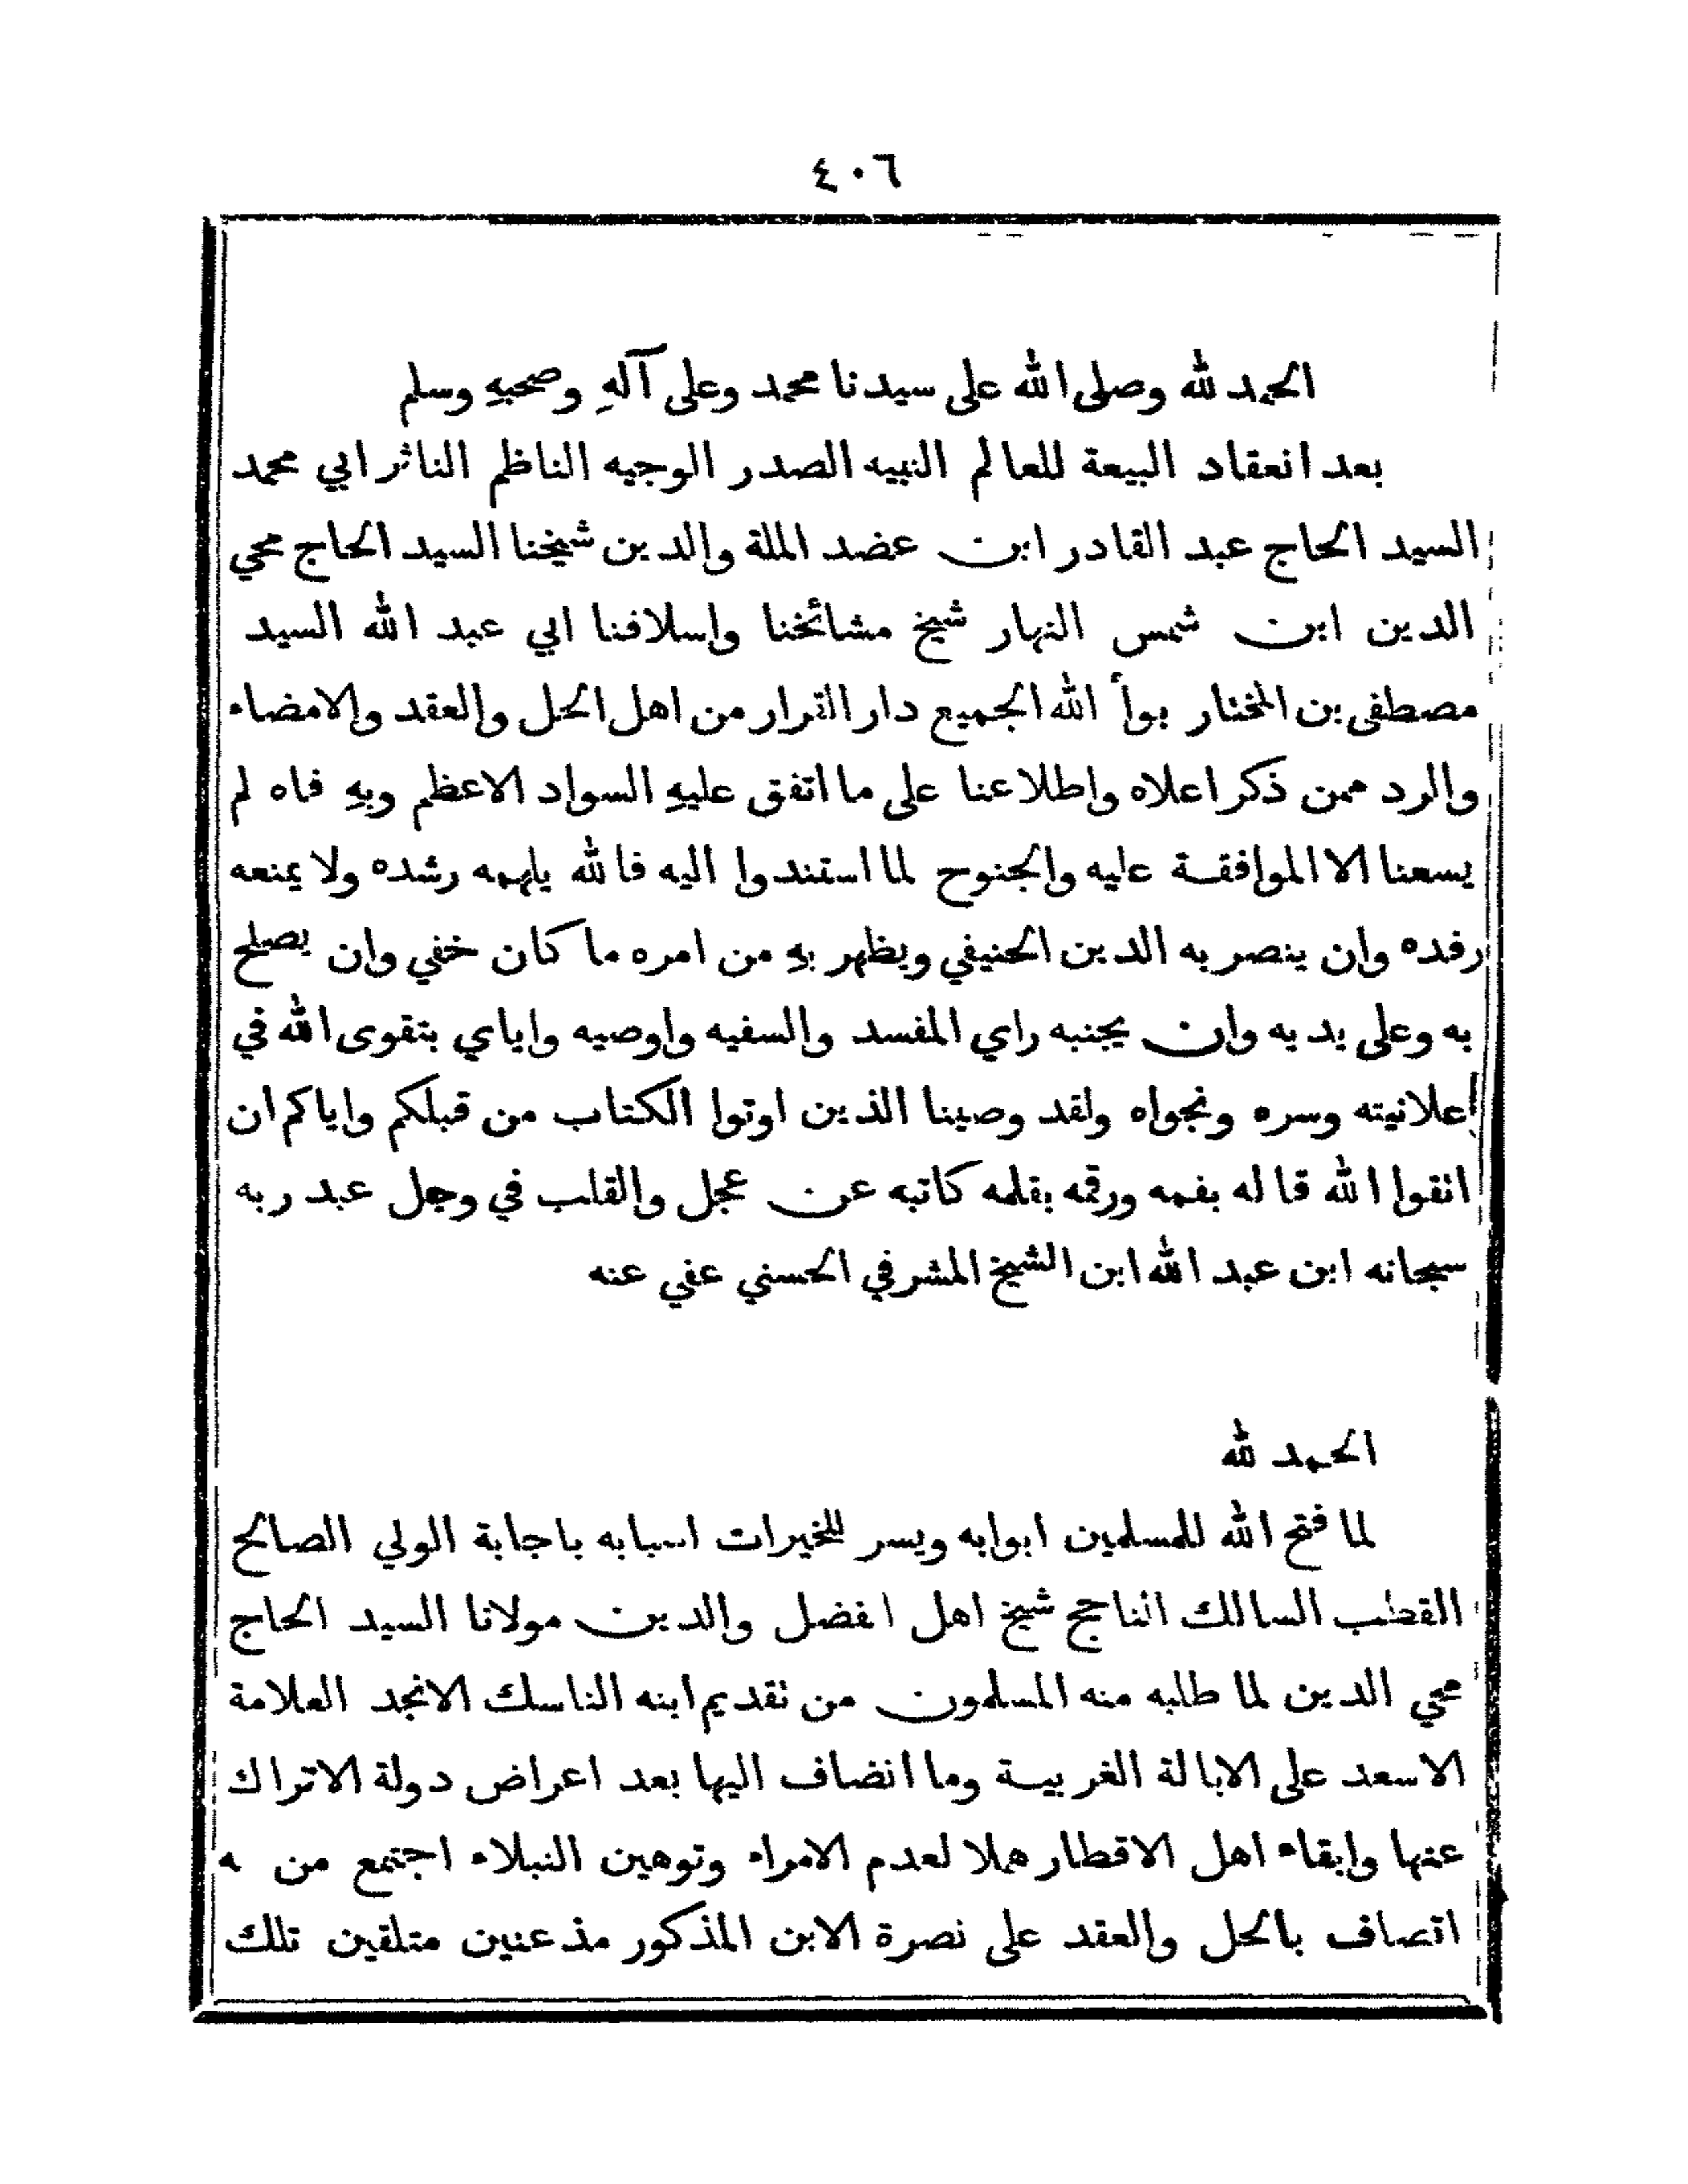 ٤٠٦
الحمد لله وصلى الله على سيدنا محمد وعلى آلهِ وصحبهِ وسلم
بعد انعقاد البيعة للعالم النبيه الصدر الوجيه الناظم الناثر ابي محمد
السيد الحاج عبد القادر ابن عضد الملة والدين شيخنا السيد الحاج محي
الدين ابن شمس النهار شيخ مشائخنا واسلافنا ابي عبد الله السيد
مصطفى بن المختار بوأ الله الجميع دار القرار من اهل الحل والعقد والامضاء
والرد ممن ذكر اعلاه واطلاعنا على ما اتفق عليهِ السواد الاعظم وبهِ فاه لم
يسعنا الا الموافقة عليه والجنوح لما استندوا اليه فالله يلهمه رشده ولا يمنعه
رفده وان ينصر به الدين الحنيفي ويظهر بهِ من امره ما كان خفي وان يصلح
به وعلى يديه وان يجنبه راي المفسد والسفيه واوصيه واياي بتقوى الله في
اعلانيته وسره ونجواه ولقد وصينا الذين اوتوا الكتاب من قبلكم واياكم ان
اتقوا الله قاله بفمه ورقمه بقلمه كاتبه عن عجل والقلب في وجل عبد ربه
سبحانه ابن عبد الله ابن الشيخ المشرفي الحسني عفي عنه
الحمد لله
لما فتح الله للمسلمين ابوابه ويسر للخيرات اسبابه باجابة الولي الصالح
القطب السالك الناجح شيخ اهل الفضل والدين مولانا السيد الحاج
محي الدين لما طلبه منه المسلمون من تقديم ابنه الناسك الانجد العلامة
الاسعد على الايالة الغربية وما انضاف اليها بعد اعراض دولة الاتراك
عنها وابقاء اهل الاقطار هملا لعدم الامراء وتوهين النبلاء اجتمع من
اتصاف بالحل والعقد على نصرة الابن المذكور مذعنين متلقين تلك